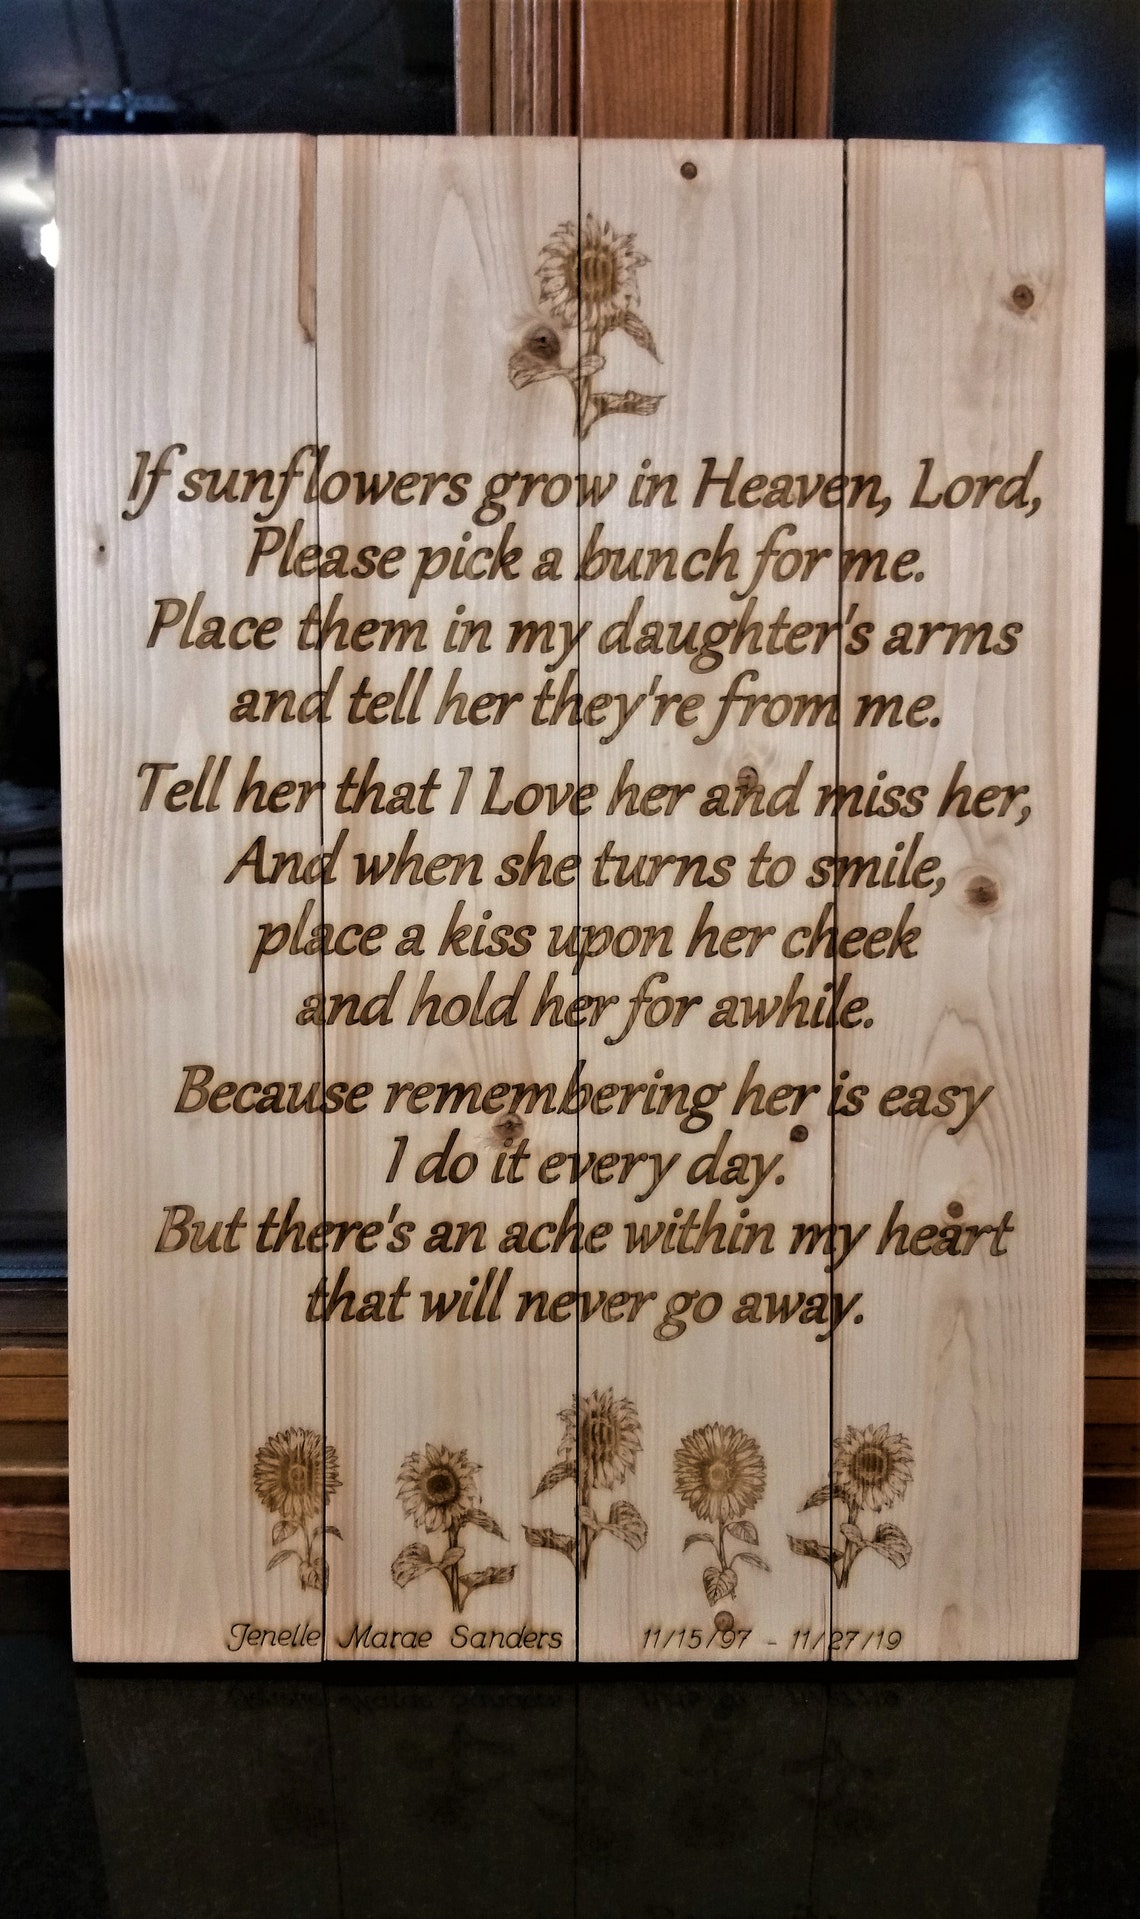 If sunflowers grow in Heaven, Lord,
Please pick a bunch for me.
Place them in my daughter's arms
and tell her they're from me.
Tell her that I Love her and miss her,
And when she turns to smile,
place a kiss upon her cheek
and hold her for awhile.
Because remembering her is easy
I do it every day.
But there's an ache within my heart
that will never go away.
Jenelle Marae Sanders 11/15/97 - 11/27/19